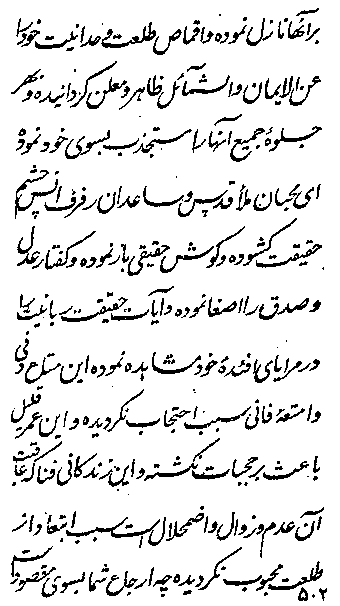 بر آنها نازل نموده واقماص طلعت وحدانیت خود را
عن الایمان والشمائل ظاهر و معلن گردانیده و بهر
جلوهٔ جمیع آنها را مستجذب بسوی خود نموده
ای محبان ملأ قدس و ساعدان رفرف انس چشم
حقیقت گشوده و گوش حقیقی باز نموده و گفتار عدل
و صدق را اصغا نموده و آیات حقیقت ربانیت را
در مرایای افئدهٔ خود مشاهده نموده این متاع دنی
و امتعهٔ فانی سبب احتجاب نگردیده و این عمر قلیل
باعث بر حجبات نگشته و این زندگانی فنا که عاقبت
آن عدم و زوال و اضمحلال است سبب ابتعاد از
طلعت محبوب نگردیده چه ارجاع شما بسوی مقصود است
۵۰۲